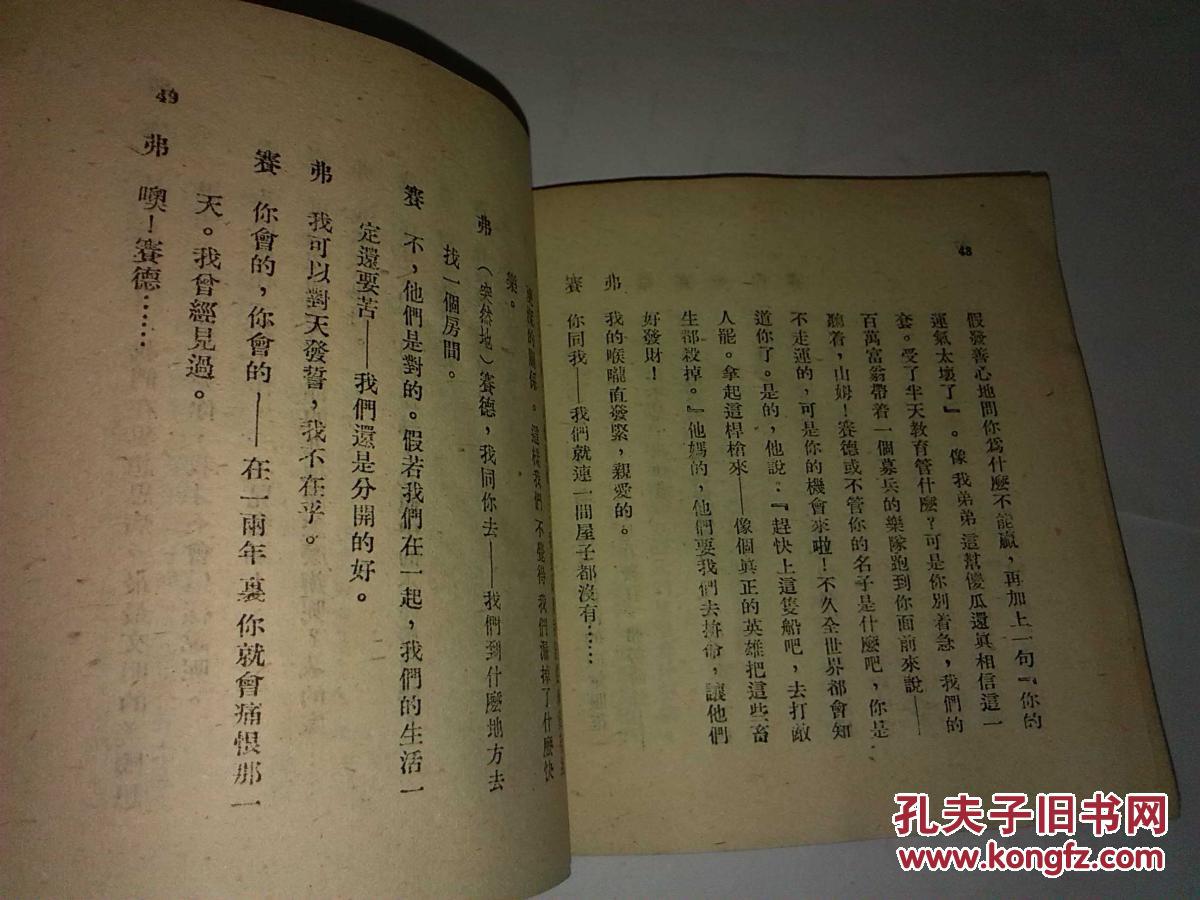 48
假發善心地問你爲什麼不能贏，再加上一句『你的
運氣太壞了』。像我弟弟這幫傻瓜還眞相信這一
套。受了半天教育管什麼？可是你別着急，我們的
百萬富翁帶着一個募兵的樂隊跑到你面前來說——
聽着，山姆！賽德或不管你的名子是什麼吧，你是
不走運的，可是你的機會來啦！不久全世界都會知
道你了。是的，他說：『趕快上這隻船吧，去打敵
人罷。拿起這桿槍來——像個眞正的英雄把這些畜
生都殺掉。』他媽的，他們要我們去拚命，讓他們
好發財！
弗 我的喉嚨直發緊，親愛的。
賽 你同我——我們就連一間屋子都沒有……
49
的關係。這樣我們不覺得我們漏掉了什麼快
樂。
弗 （突然地）賽德，我同你去——我們到什麼地方去
找一個房間。
賽 不，他們是對的。假若我們在一起，我們的生活一
定還要苦——我們還是分開的好。
弗 我可以對天發誓，我不在乎。
賽 你會的，你會的——在一兩年裏你就會痛恨那一
天。我曾經見過。
弗 噢！賽德……
孔夫子旧书网
www.kongfz.com